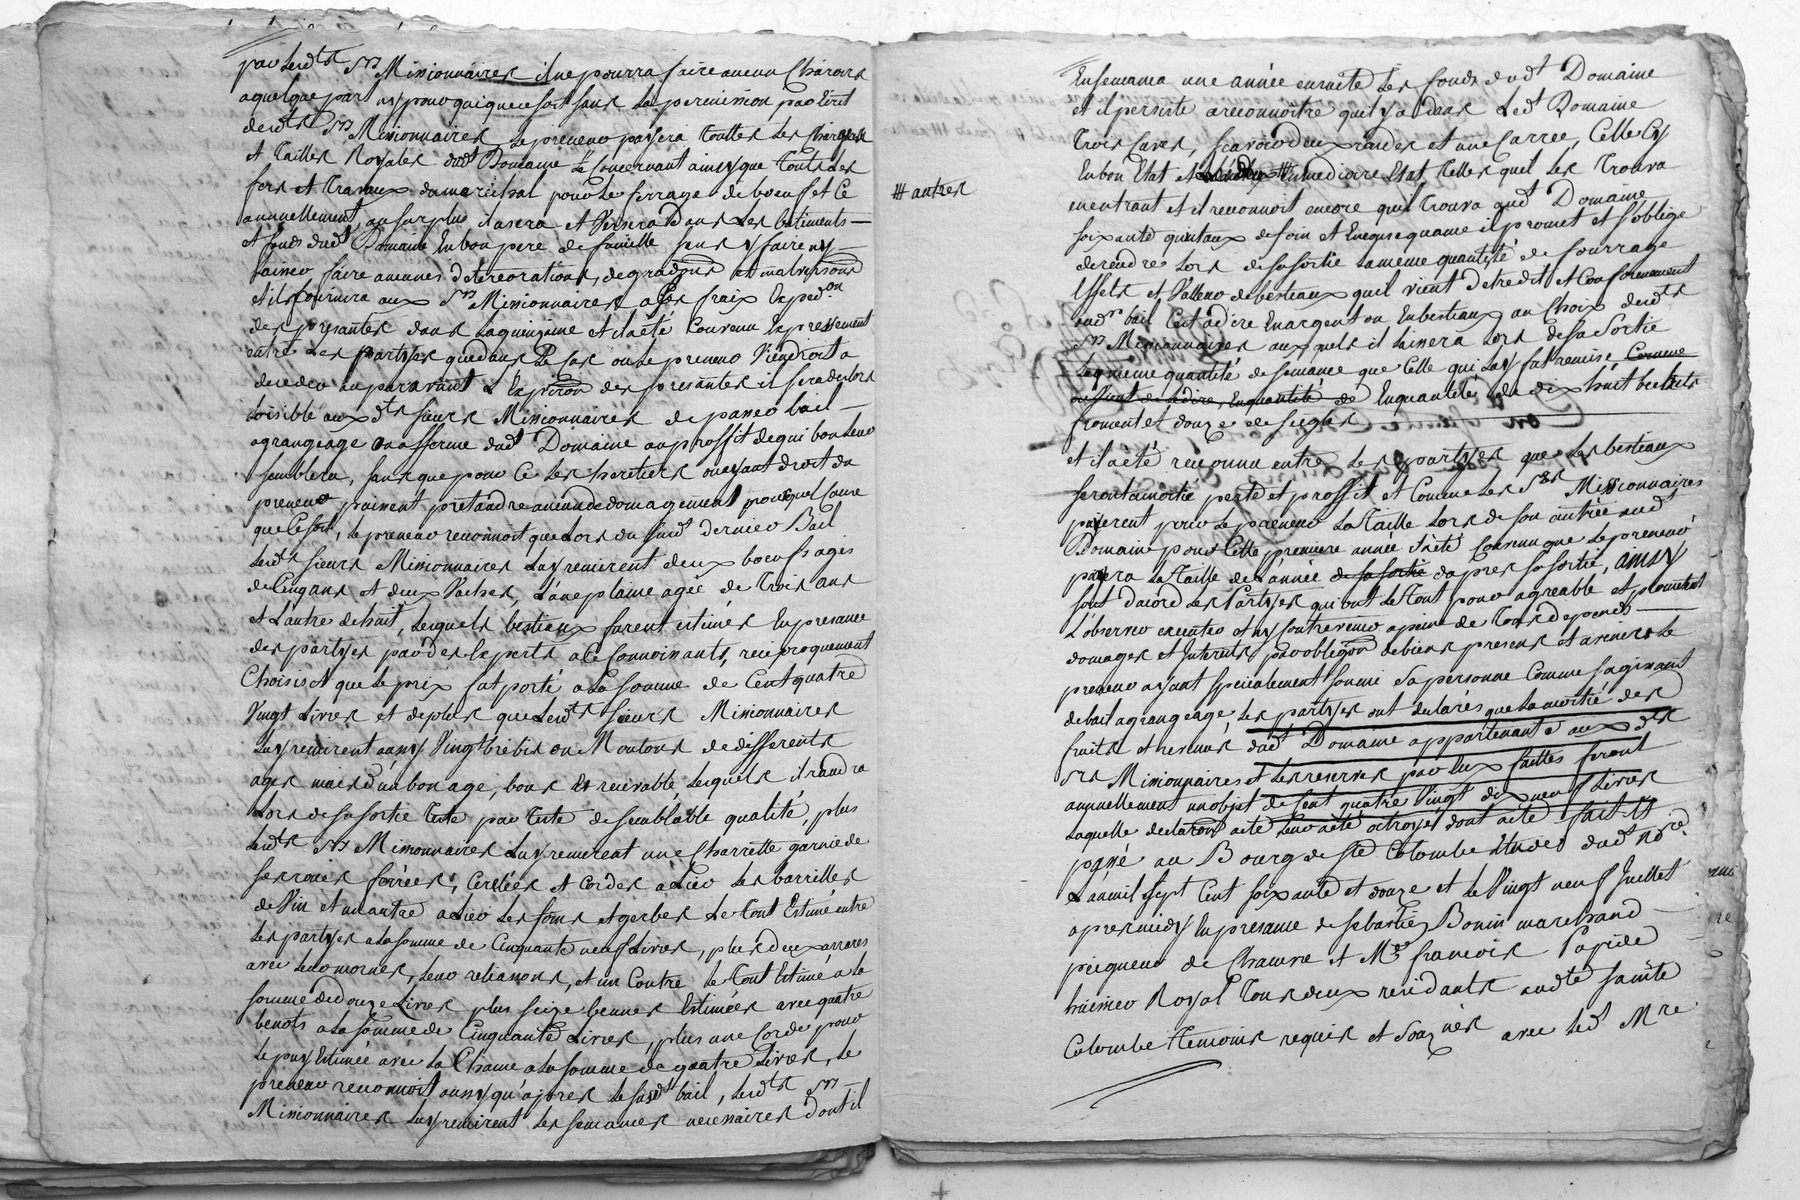 par lesdts srs Missionnaires il ne pourra faire aucun Charois
a quelque part ny pour qui que ce soit sans la permission par Ecrit
desdts srs Missionnaires, Le preneur payera touttes les Charges
et Tailles Royales dudt Domaine Le concernant ainsy que touts les
fers et travaux du marechal pour Le ferrage de boeufs et Ce
annuellement, au surplus il usera et Versera dans Les batiments
et fonds dudt Domaine En bon pere de famille sans y faire ny
laisser faire aucunes detereorations, degradons et malversons
et il fournira aux srs Missionnaires a ses fraix Expedon
des presantes dans la quinzaine et il a été Convenu Expressement
entre Les partyes que dans Le Cas ou Le preneur Viendroit a
deceder auparavant L'Expiron des presantes il sera des lors
Loisible aux dts sieurs Missionnaires de passer bail
a grangeage ou a fferme dudt Domaine au proffit de qui bon leur
semblera, sans que pour Ce les heritiers ou ayant droit du
preneur, puissent pretandre aucun dedomagement pour quel Cause
que Ce soit, le preneur reconnoit que Lors du susdt dernier Bail
Lesdts sieurs Missionnaires Luy remirent deux boeufs agés
de Cinq ans et deux Vaches, L'une pleine agée de trois ans
et L'autre de huit, Lesquels bestiaux furent estimés En presance
des partyes par des Experts a Ce Connoissants, reciproquement
Choisis et que Le prix fut porté a La somme de Cent quatre
Vingt Livres et de plus que Lesdts sieurs Missionnaires
Luy remirent aussy Vingt brebis ou Moutons de differents
ages mais d'un bon age, bons et recevable, Lesquels il randra
Lors de sa sortie Teste par Teste de semblable qualité, plus
Lesdts srs Missionnaires Luy remirent une Charrette garnie de
ses roues ferrées, Cerclées et Cordes a Lier Les barrilles
de Vin et un autre a Lier Les foins et gerbes Le tout Estimé entre
Les partyes a la somme de Cinquante neuf Livres, plus deux arreres
avec Leur mornes, Leur reliasons, et un Contre Le tout Estimé a la
somme de douze Livres plus seize bennes Estimées avec quatre
benots a la somme de Cinquante Livres, plus une Corde pour
Le puy Estimée avec La Chaine a la somme de quatre Livres, Le
preneur reconnoit aussy qu'apres le susdt bail, Lesdts srs
Missionnaires Luy remirent Les semances necessaires dont il
Ensemança une année ensuite Les fonds dudt Domaine
et il persiste a reconnoitre quil y a dans Ledt Domaine
Trois Cuves, sçavoir deux rondes et une Carrée, Celle Cy
En bon Etat et # En mediocre Etat telles quil Les trouva
# autres
en entrant et il reconnoit encore quil trouva audt Domaine
soixante quintaux de foin et En consequance il promet et s'oblige
de rendre Lors de sa sortie La meme quantité de fourrage
Effets et Valleur de bestiaux quil Vient d'etre dit et Conformement
audt bail Cest a dire En argent ou En bestiaux au Choix desdts
srs Missionnaires auxquels il laissera Lors de sa sortie
La meme quantité de semance que Celle qui Luy fut remise Comme
aussi Cest a dire, En quantité de En quantité de dix huit bichets
froment et douze de seigles
et il a été reconnu entre Les partyes que les bestiaux
seront a moitié perte et proffit et Comme Les srs Missionnaires
payerent pour Le preneur La taille Lors de son entrée audt
Domaine pour Cette premiere année il a été Convenu que Le preneur
payera La Taille de L'année de sa sortie d'apres sa sortie, ainsy
sont d'acord Les Partyes qui ont Le tout pour agreable et promettent
L'observer executer et ny Contrevenir a peine de tous depends
domages et Interets par obligon de biens presens et avenir Le
preneur ayant specialement soumis sa personne Comme s'agissant
de bail a grangeage, Les partyes ont declarés que La moitié des
fruits et revenus dudt Domaine appartenante aux dts
srs Missionnaires et Les reserves par Eux faittes feront
annuellement un objet de Cent quatre Vingt dix neuf Livres
Laquelle declaron acte Leur a été octroyé dont acte fait et
passé au Bourg de Ste Colombe Etude dudt Nore.
L'an mil sept Cent soixante et douze et le Vingt neuf Juillet
apres midy En presance de sebastien Bonin marchand
peigneur de Chanvre et Me françois Papide
huissier Royal Tous deux residants audt sainte
Colombe temoins requis et soignés avec Ledt Mre